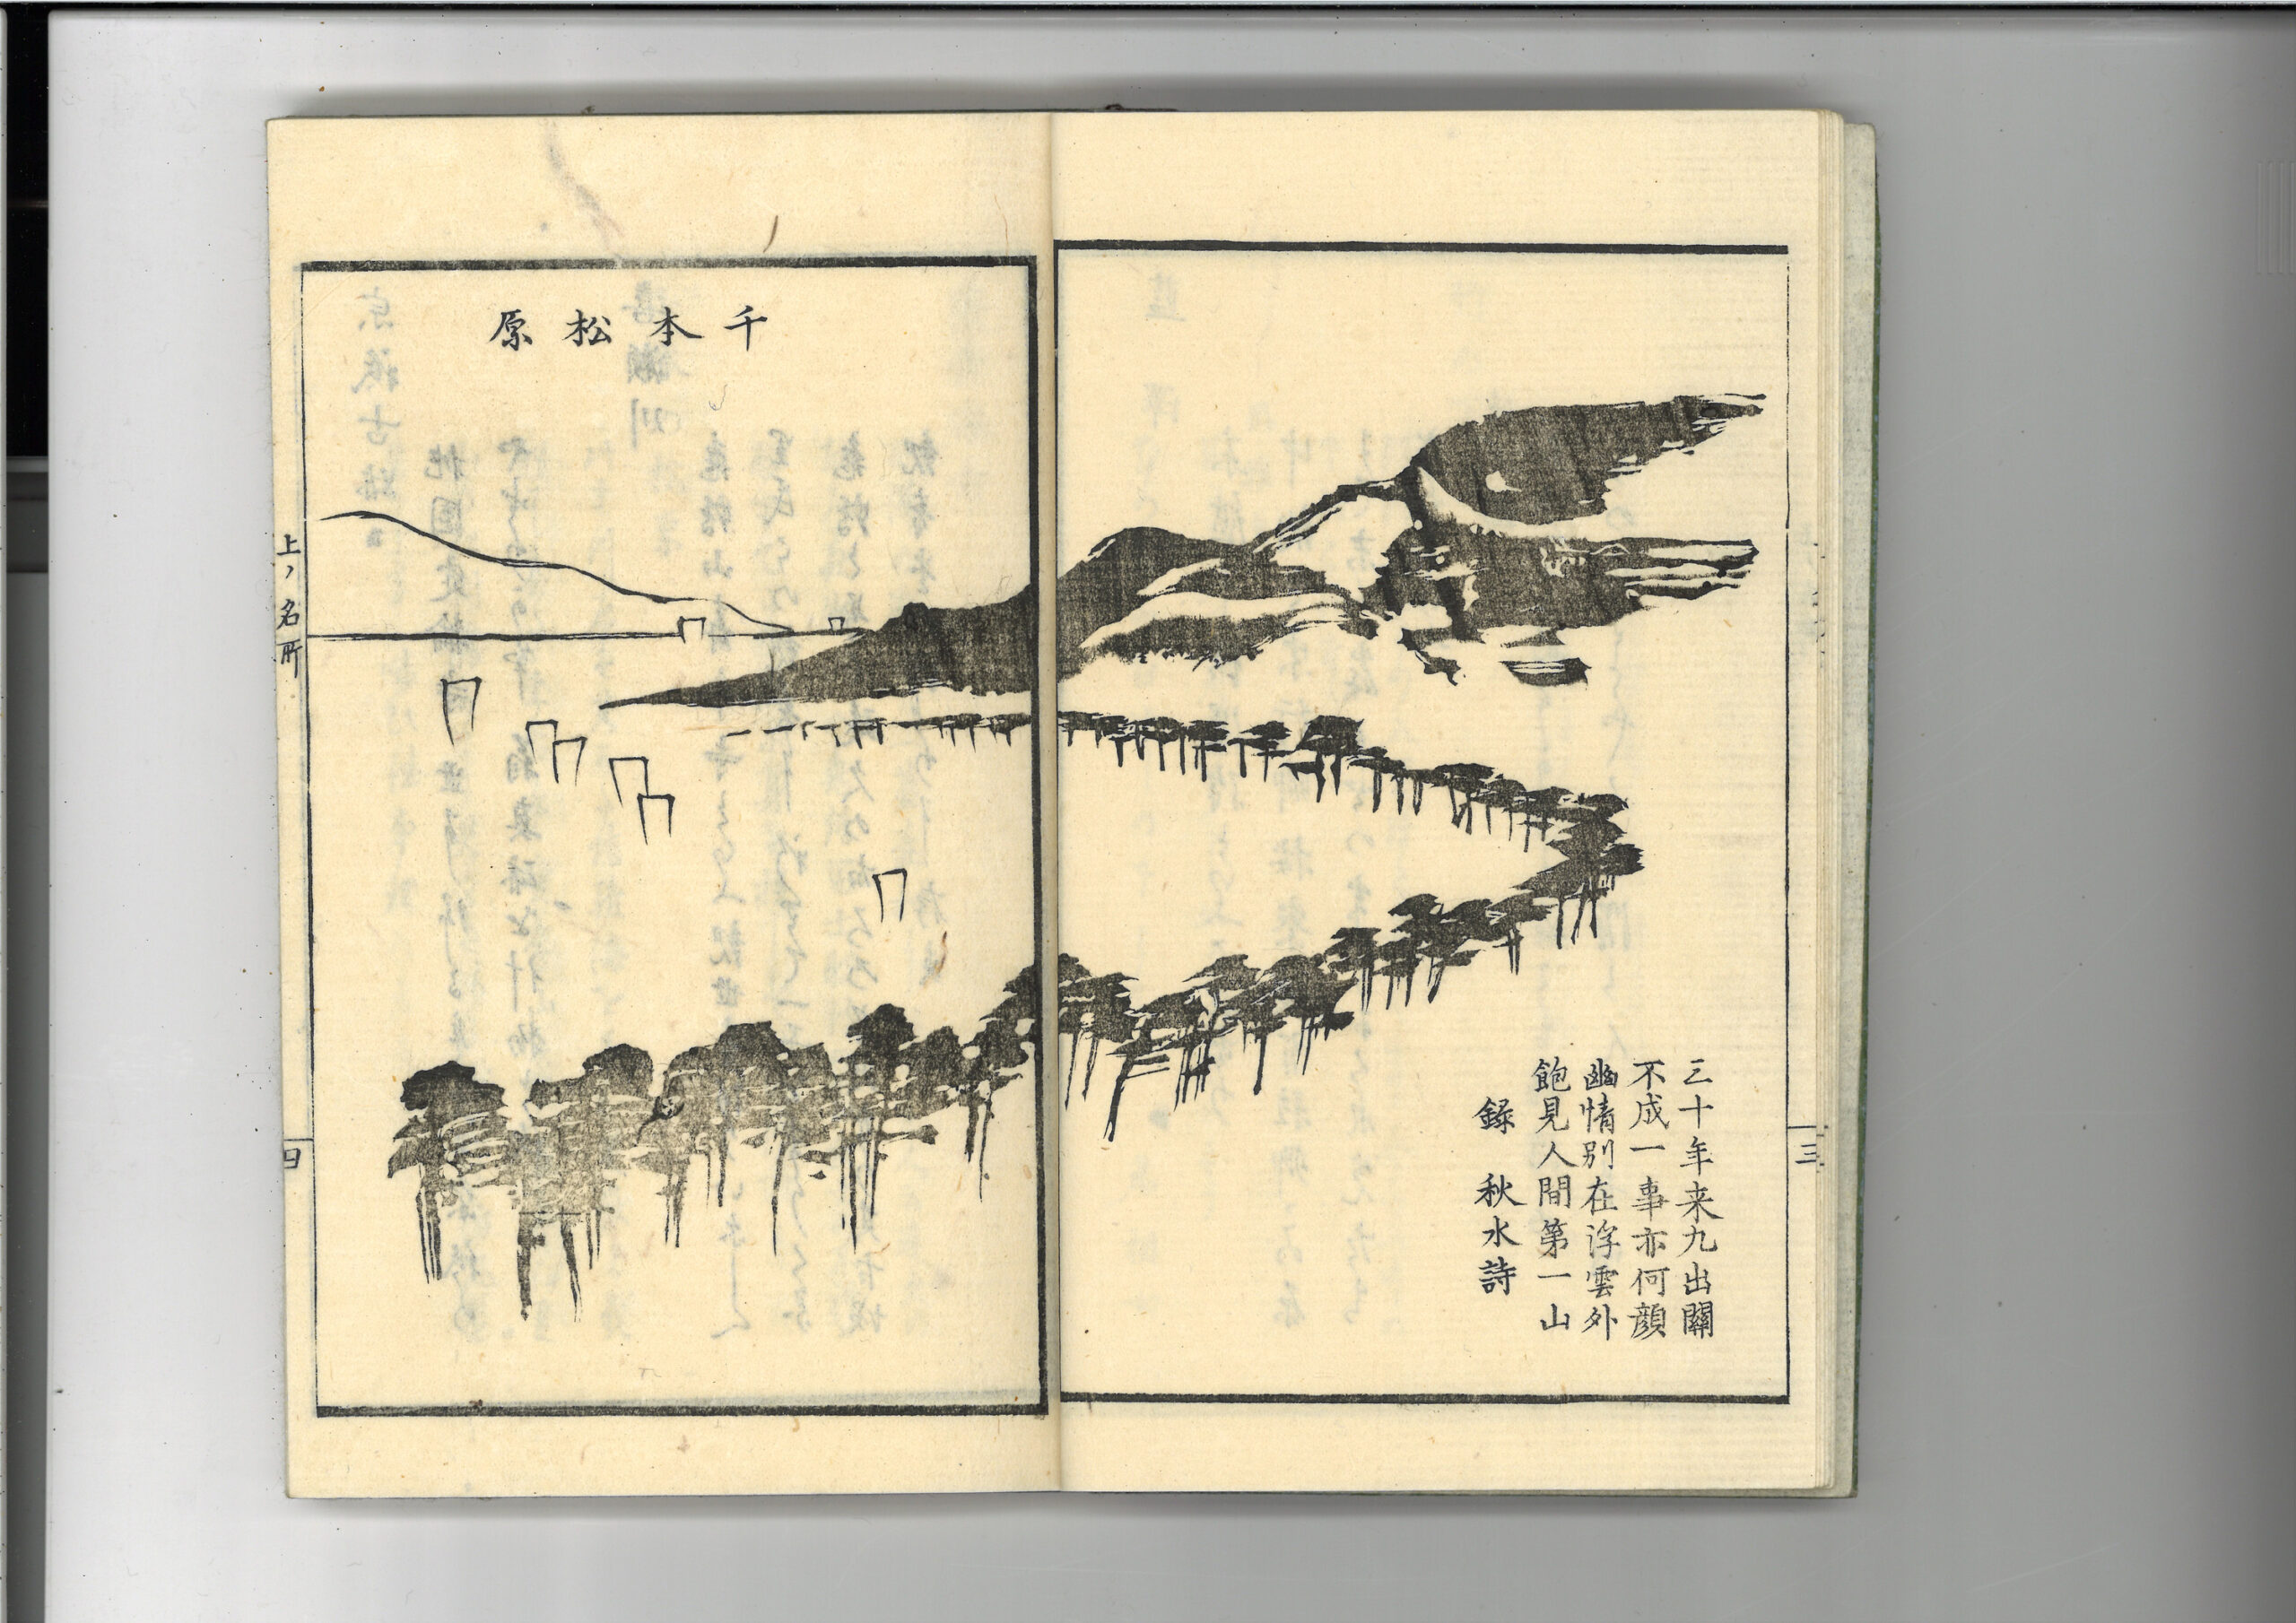 三十年来九出關
不成一事亦何顔
幽情別在浮雲外
飽見人間第一山
録 秋水詩
三
千本松原
上ノ名所
四